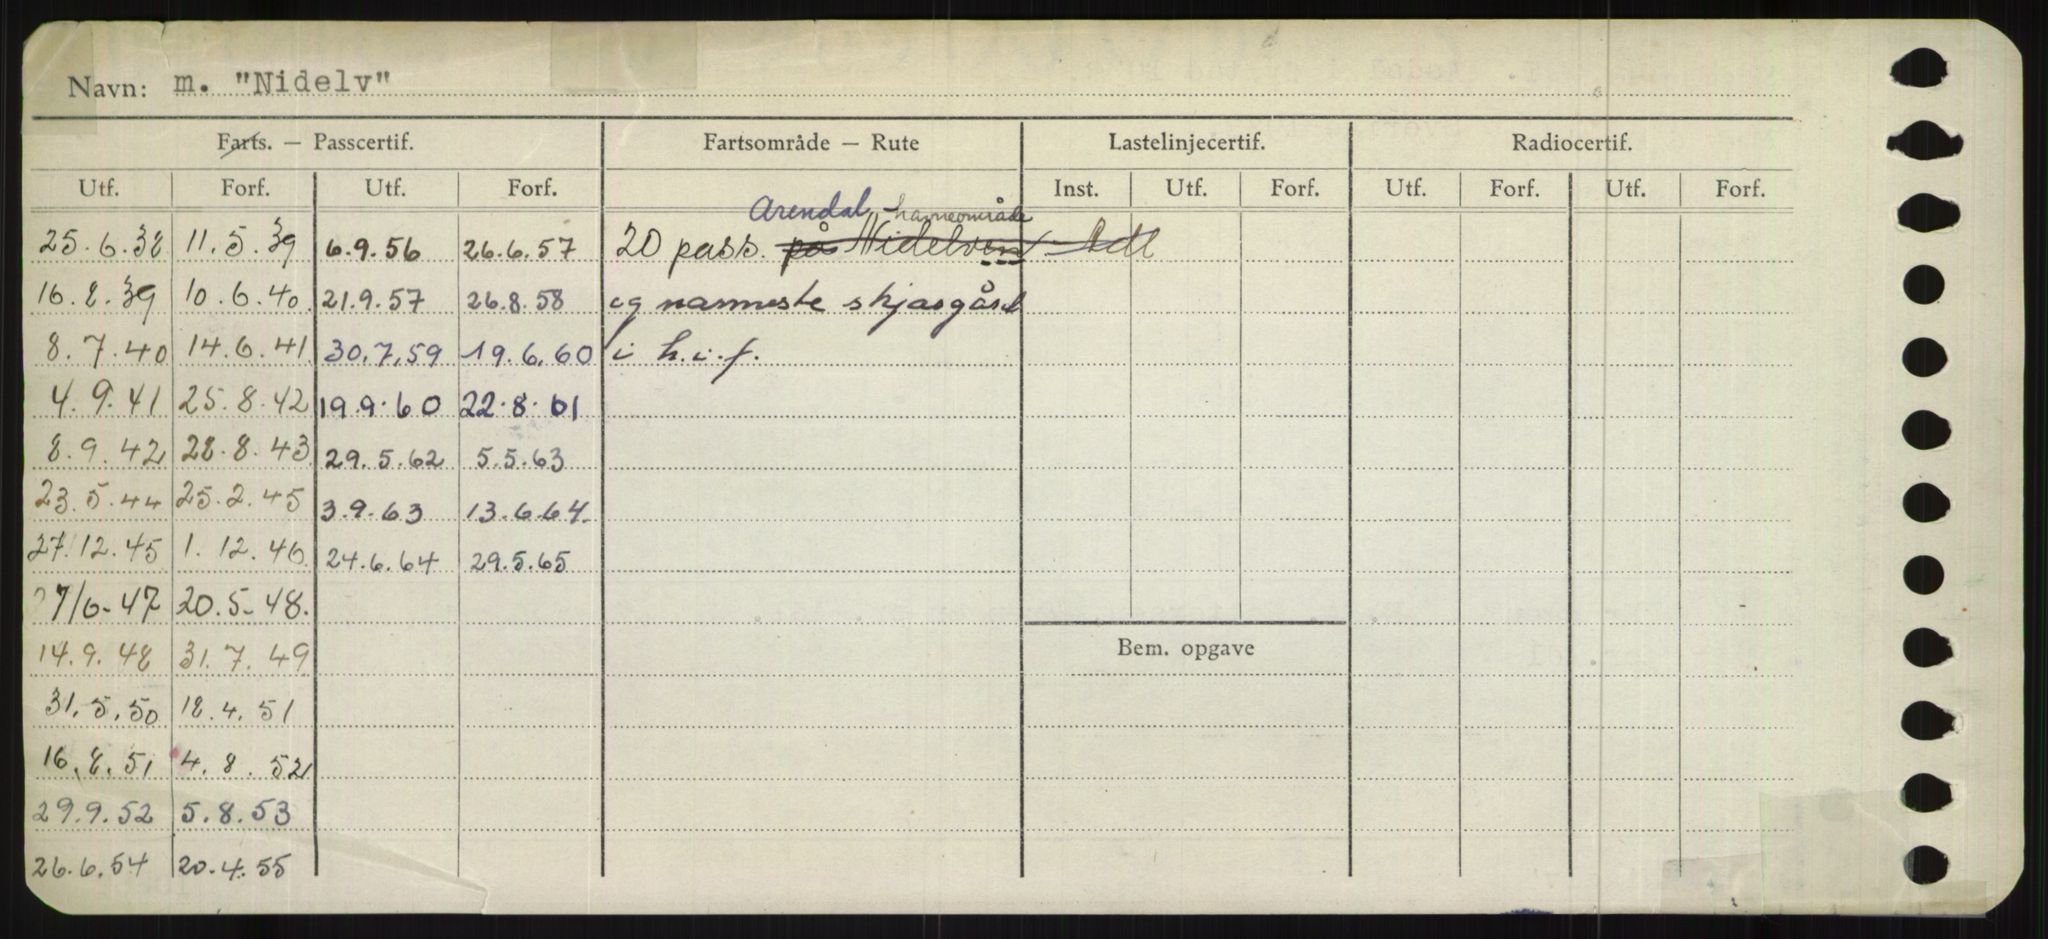 Navn: m. "Nidelv"
Farts. — Passcertif. Fartsområde — Rute Lastelinjecertif. Radiocertif.
Utf. Forf. Utf. Forf. Inst. Utf. Forf. Utf. Forf. Utf. Forf.
Arendal havneområde
25.6.38 11.5.39 6.9.56 26.6.57 20 pass. på Nidelven
16.8.39 10.6.40 21.9.57 26.8.58 og nærmeste skjærgård
8.7.40 14.6.41 30.7.59 19.6.60 i h.i.f.
4.9.41 25.8.42 19.9.60 22.8.61
8.9.42 28.8.43 29.5.62 5.5.63
23.5.44 25.2.45 3.9.63 13.6.64.
27.12.45 1.12.46 24.6.64 29.5.65
7/6-47 20.5-48.
14.9.48 31.7.49
31.5.50 18.4.51
Bem. opgave
16.8.51 4.8.52
29.9.52 5.8.53
26.6.54 20.4.55